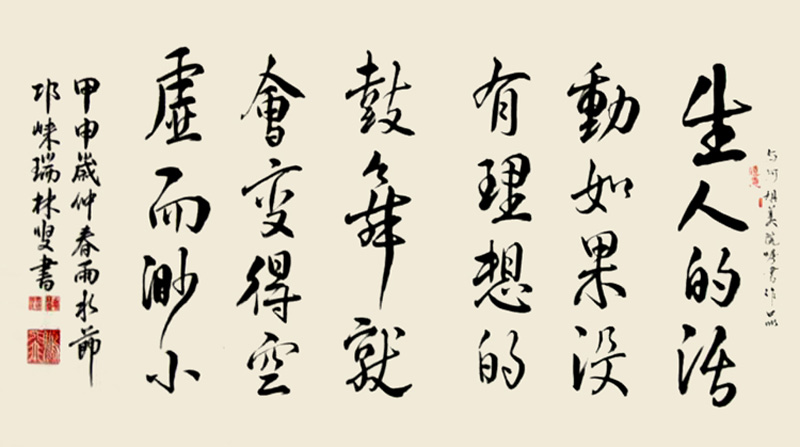 書作品
生人的活
動如果没
有理想的
鼓舞就
會变得空
虚而渺小
甲申歲仲春雨水節
邛崍瑞林叟書